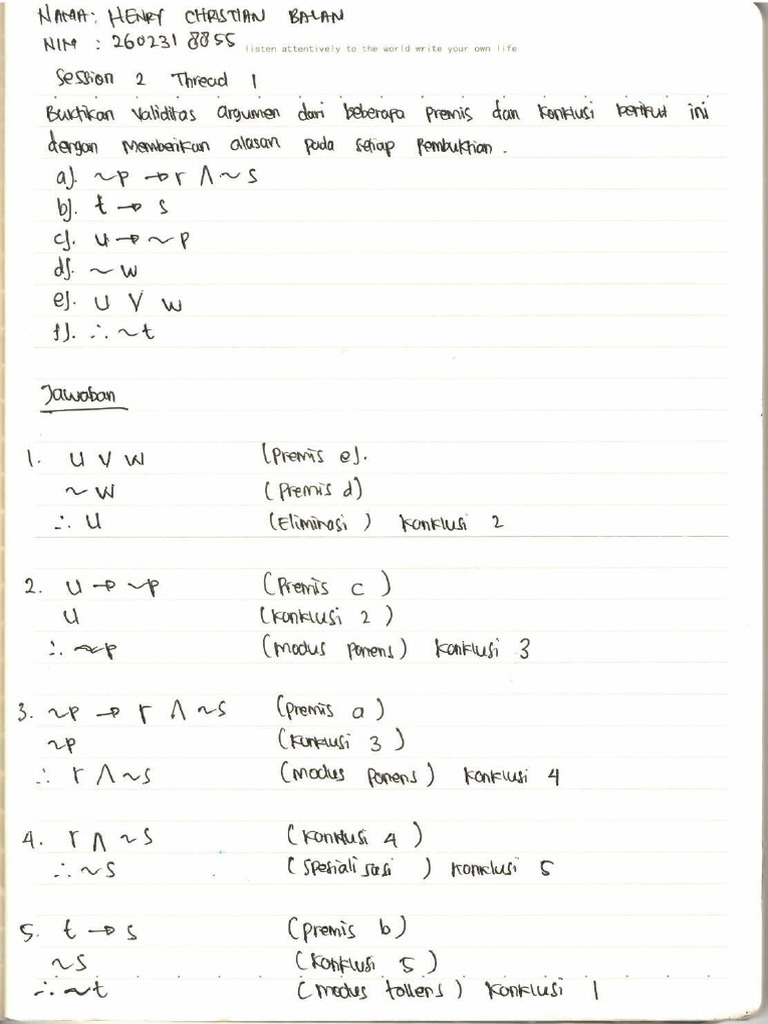 NAMA: HENRY CHRISTIAN BALAN
NIM : 2602318855 listen attentively to the world write your own life
Session 2 Thread 1
Buktikan validitas argumen dari beberapa premis dan konklusi berikut ini
dengan memberikan alasan pada setiap pembuktian.
a). ~p → r ∧ ~s
b). t → s
c). u → ~p
d). ~w
e). u ∨ w
f). ∴ ~t
Jawaban
1. u ∨ w (Premis e).
~w (Premis d)
∴ u (Eliminasi) konklusi 2
2. u → ~p (Premis c)
u (konklusi 2)
∴ ~p (modus ponens) konklusi 3
3. ~p → r ∧ ~s (premis a)
~p (konklusi 3)
∴ r ∧ ~s (modus ponens) konklusi 4
4. r ∧ ~s (konklusi 4)
∴ ~s (spesialisasi) konklusi 5
5. t → s (premis b)
~s (konklusi 5)
∴ ~t (modus tollens) konklusi 1